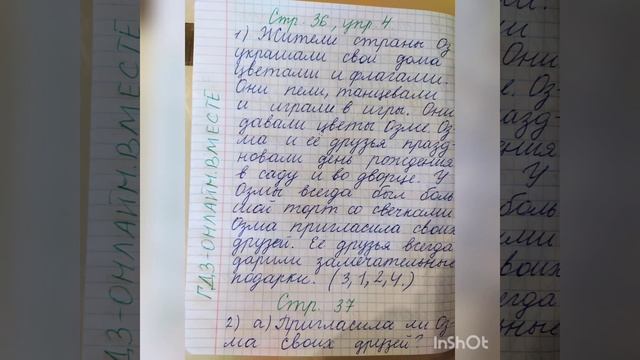 Стр. 36, упр. 4
1) Жители страны Оз
украшали свои дома
цветами и флагами.
Они пели, танцевали
и играли в игры. Они
давали цветы Озме. Оз-
ма и её друзья празд-
новали день рождения
в саду и во дворце. У
Озмы всегда был боль
шой торт со свечками
Озма пригласила своих
друзей. Её друзья всегда
дарили замечательные
подарки. (3, 1, 2, 4.)
Стр. 37
2) а) Пригласила ли Оз-
ма своих друзей?
ГДЗ-ОНЛАЙН.ВМЕСТЕ
InShOt